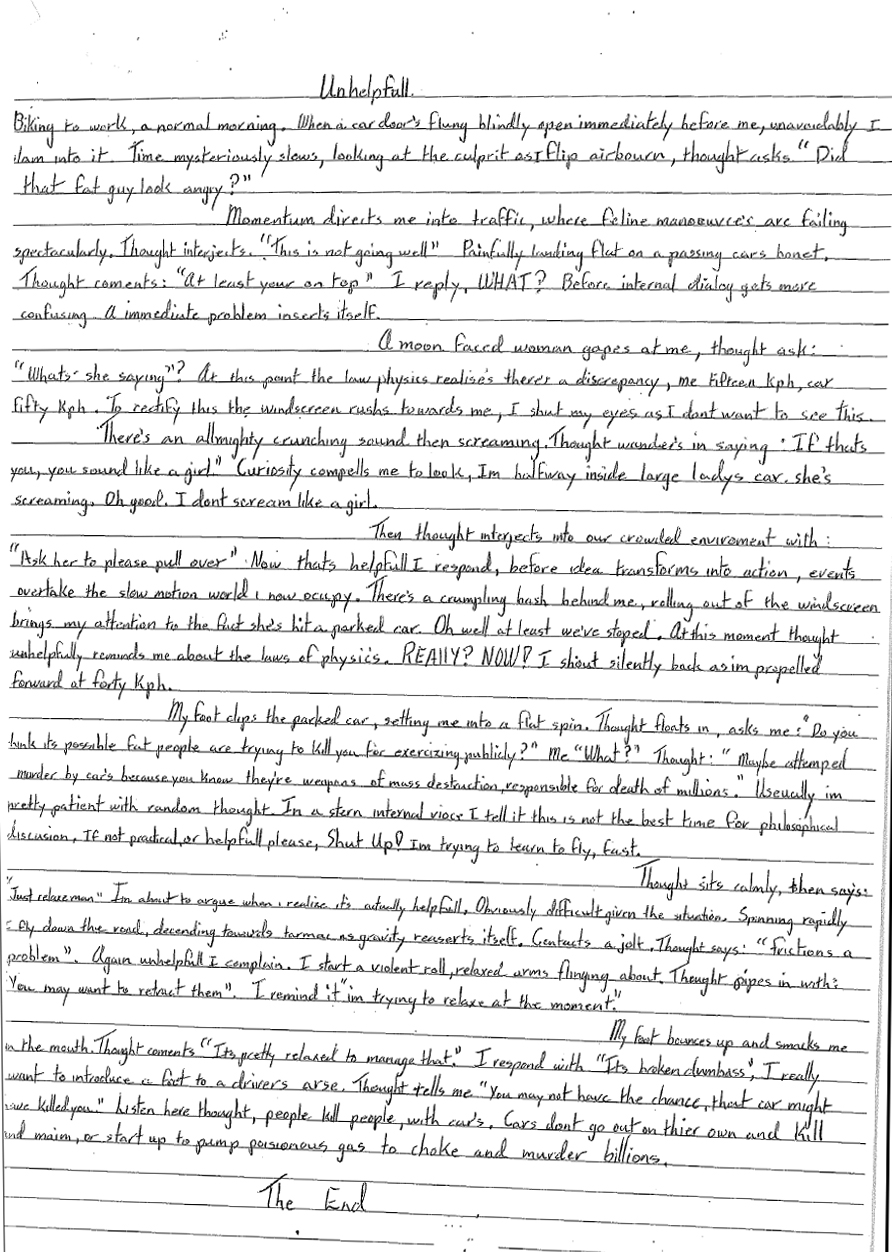 Unhelpfull.
Biking to work, a normal morning. When a car door's flung blindly open immediately before me, unavoidably I
slam into it. Time mysteriously slows, looking at the culprit as I flip airbourn, thought asks. "Did
that fat guy look angry?"
Momentum directs me into traffic, where feline manoeuvre's are failing
spectacularly. Thought interjects. "This is not going well" Painfully landing flat on a passing cars bonet.
Thought coments: "At least your on top" I reply, WHAT? Before internal dialog gets more
confusing. A immediate problem inserts itself.
A moon faced woman gapes at me, thought ask:
"Whats she saying"? At this point the law physics realise's there's a discrepancy, me fifteen kph, car
fifty Kph. To rectify this the windscreen rushs towards me, I shut my eyes as I dont want to see this.
There's an allmighty crunching sound then screaming. Thought wander's in saying: If thats
you, you sound like a girl." Curiosity compells me to look, Im halfway inside large ladys car. she's
screaming. Oh good. I dont scream like a girl.
Then thought interjects into our crowded enviroment with:
"Ask her to please pull over" Now thats helpfull I respond, before idea transforms into action, events
overtake the slow motion world i now occupy. There's a crumpling bash behind me, rolling out of the windscreen
brings my attention to the fact she's hit a parked car. Oh well at least we've stoped. At this moment thought
unhelpfully reminds me about the laws of physics. REAllY? NOW? I shout silently back as im propelled
forward at forty Kph.
My foot clips the parked car, setting me into a flat spin. Thought floats in, asks me: "Do you
think its possible fat people are trying to kill you for exercizing publicly?" Me "What?" Thought: "Maybe attemped
murder by car's because you know they're weapons of mass destruction, responsible for death of millions." Useually im
pretty patient with random thought. In a stern internal vioce I tell it this is not the best time for philosophical
discusion, If not practical, or helpfull please, Shut Up! Im trying to learn to fly, fast.
Thought sits calmly, then says:
"Just relaxe man" Im about to argue when i realize it's actually helpfull. Obviously difficult given the situation. Spinning rapidly
I fly down the road, decending towards tarmac as gravity reaserts itself. Contacts a jolt. Thought says: "frictions a
problem". Again unhelpfull I complain. I start a violent roll, relaxed arms flinging about. Thought pipes in with:
"You may want to retract them". I remind it "im trying to relaxe at the moment."
My foot bounces up and smacks me
in the mouth. Thought coments "Its pretty relaxed to manage that." I respond with "Its broken dumbass", I really
want to introduce a foot to a drivers arse. Thought tells me "You may not have the chance, that car might
have killed you." Listen here thought, people kill people, with car's. Cars dont go out on thier own and kill
and maim, or start up to pump poisionous gas to choke and murder billions.
The End